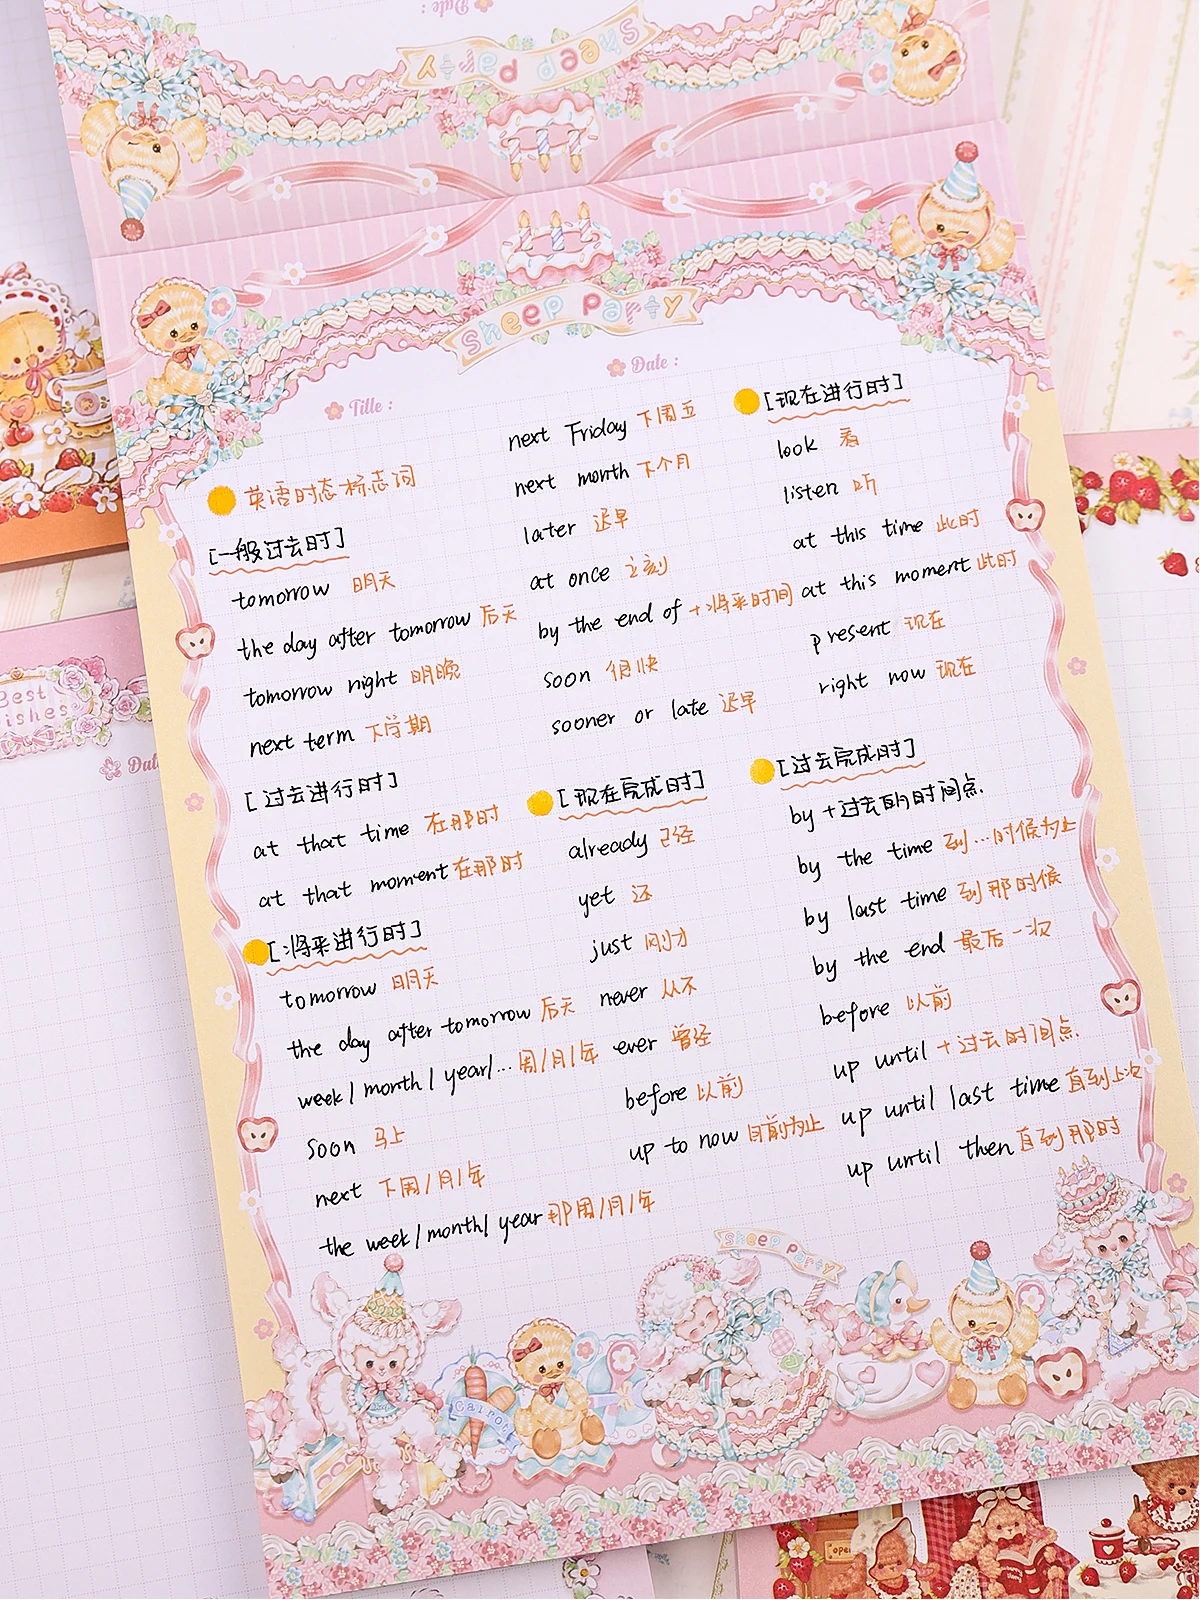 Date :
Sheep Party
Sheep Party
Date :
Title :
英语时态标志词
[一般过去时]
tomorrow 明天
the day after tomorrow 后天
tomorrow night 明晚
next term 下学期
[过去进行时]
at that time 在那时
at that moment 在那时
[将来进行时]
tomorrow 明天
the day after tomorrow 后天
week/month/year/... 周/月/年
soon 马上
next 下周/月/年
the week/month/year 那周/月/年
next Friday 下周五
next month 下个月
later 迟早
at once 立刻
by the end of +将来时间
soon 很快
sooner or late 迟早
[现在完成时]
already 已经
yet 还
just 刚才
never 从不
ever 曾经
before 以前
up to now 目前为止
[现在进行时]
look 看
listen 听
at this time 此时
at this moment 此时
present 现在
right now 现在
[过去完成时]
by +过去的时间点.
by the time 到...时候为止
by last time 到那时候
by the end 最后一次
before 以前
up until +过去时间点.
up until last time 直到上次
up until then 直到那时
Sheep Party
Carrot
Best
Wishes
Dat
open